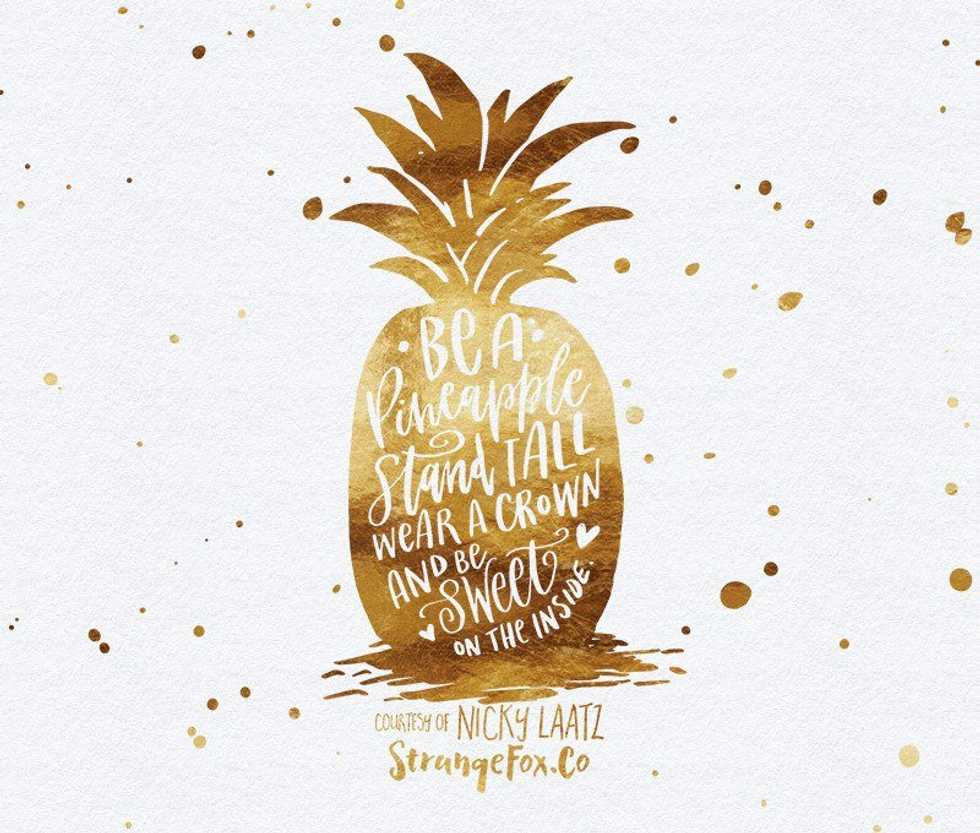 Be A
Pineapple
Stand TALL
WeAR A CROWN
AND Be
Sweet
ON THe INSIDE.
COURTESY OF NICKY LAATZ
StrangeFox.Co